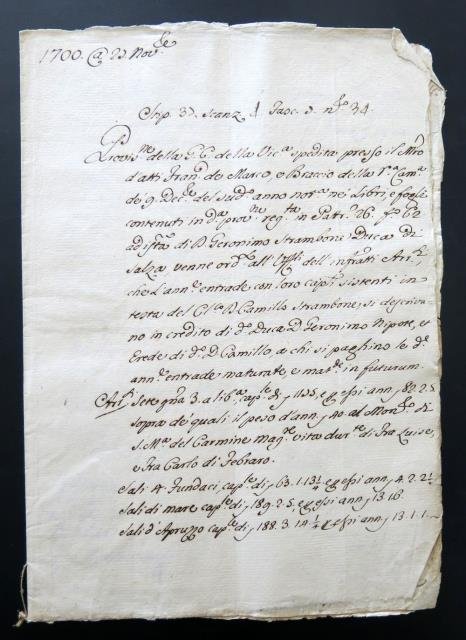 1700. @ 23 Nov.e
Stip. 3.ª scanz. 4 Fasc. 3. n.º 34.
Provis.ne della G. C. della Vic.a spedita presso il M.ro
d'atti Fran.º de Marco, e Braccio della R.a Cam.a
de 9. Dec.e del sud.º anno not.ª nei Libri, e fogli
contenuti in d.a prov.ne reg.ta in Patr.º 26. f.º 62
ad ist.a di D. Geronimo Strambone Duca di
Salza venne ord.º all' Off.li dell' infratti Arr.ti
che l'ann.e entrade con loro cap.li sistenti in
testa del C.la D. Camillo Strambone, si descriva-
no in credito di d.º Duca D. Geronimo Nipote, et
Erede di d.º D. Camillo, a chi si paghino le d.e
ann.e entrade maturate, e mat.de in futurum.
Arr.ti Sete gña 3. a lib.a cap.le di 1155, et essi ann. 82.2.5
sopra de' quali il peso d'ann. 40 al Mon.º di
S. M.a del Carmine mag.re vita dur.te di Fra Luise,
e Fra Carlo di Febraro.
Sali 4. Fundaci, cap.le di 63.1.13 1/4 et essi ann. 4.2.2 1/2
Sali di mare cap.le di 189.2.5, et essi ann. 13.16.
Sali d'Apruzzo cap.le di 188.3.14 1/2 et essi ann. 13.1.1